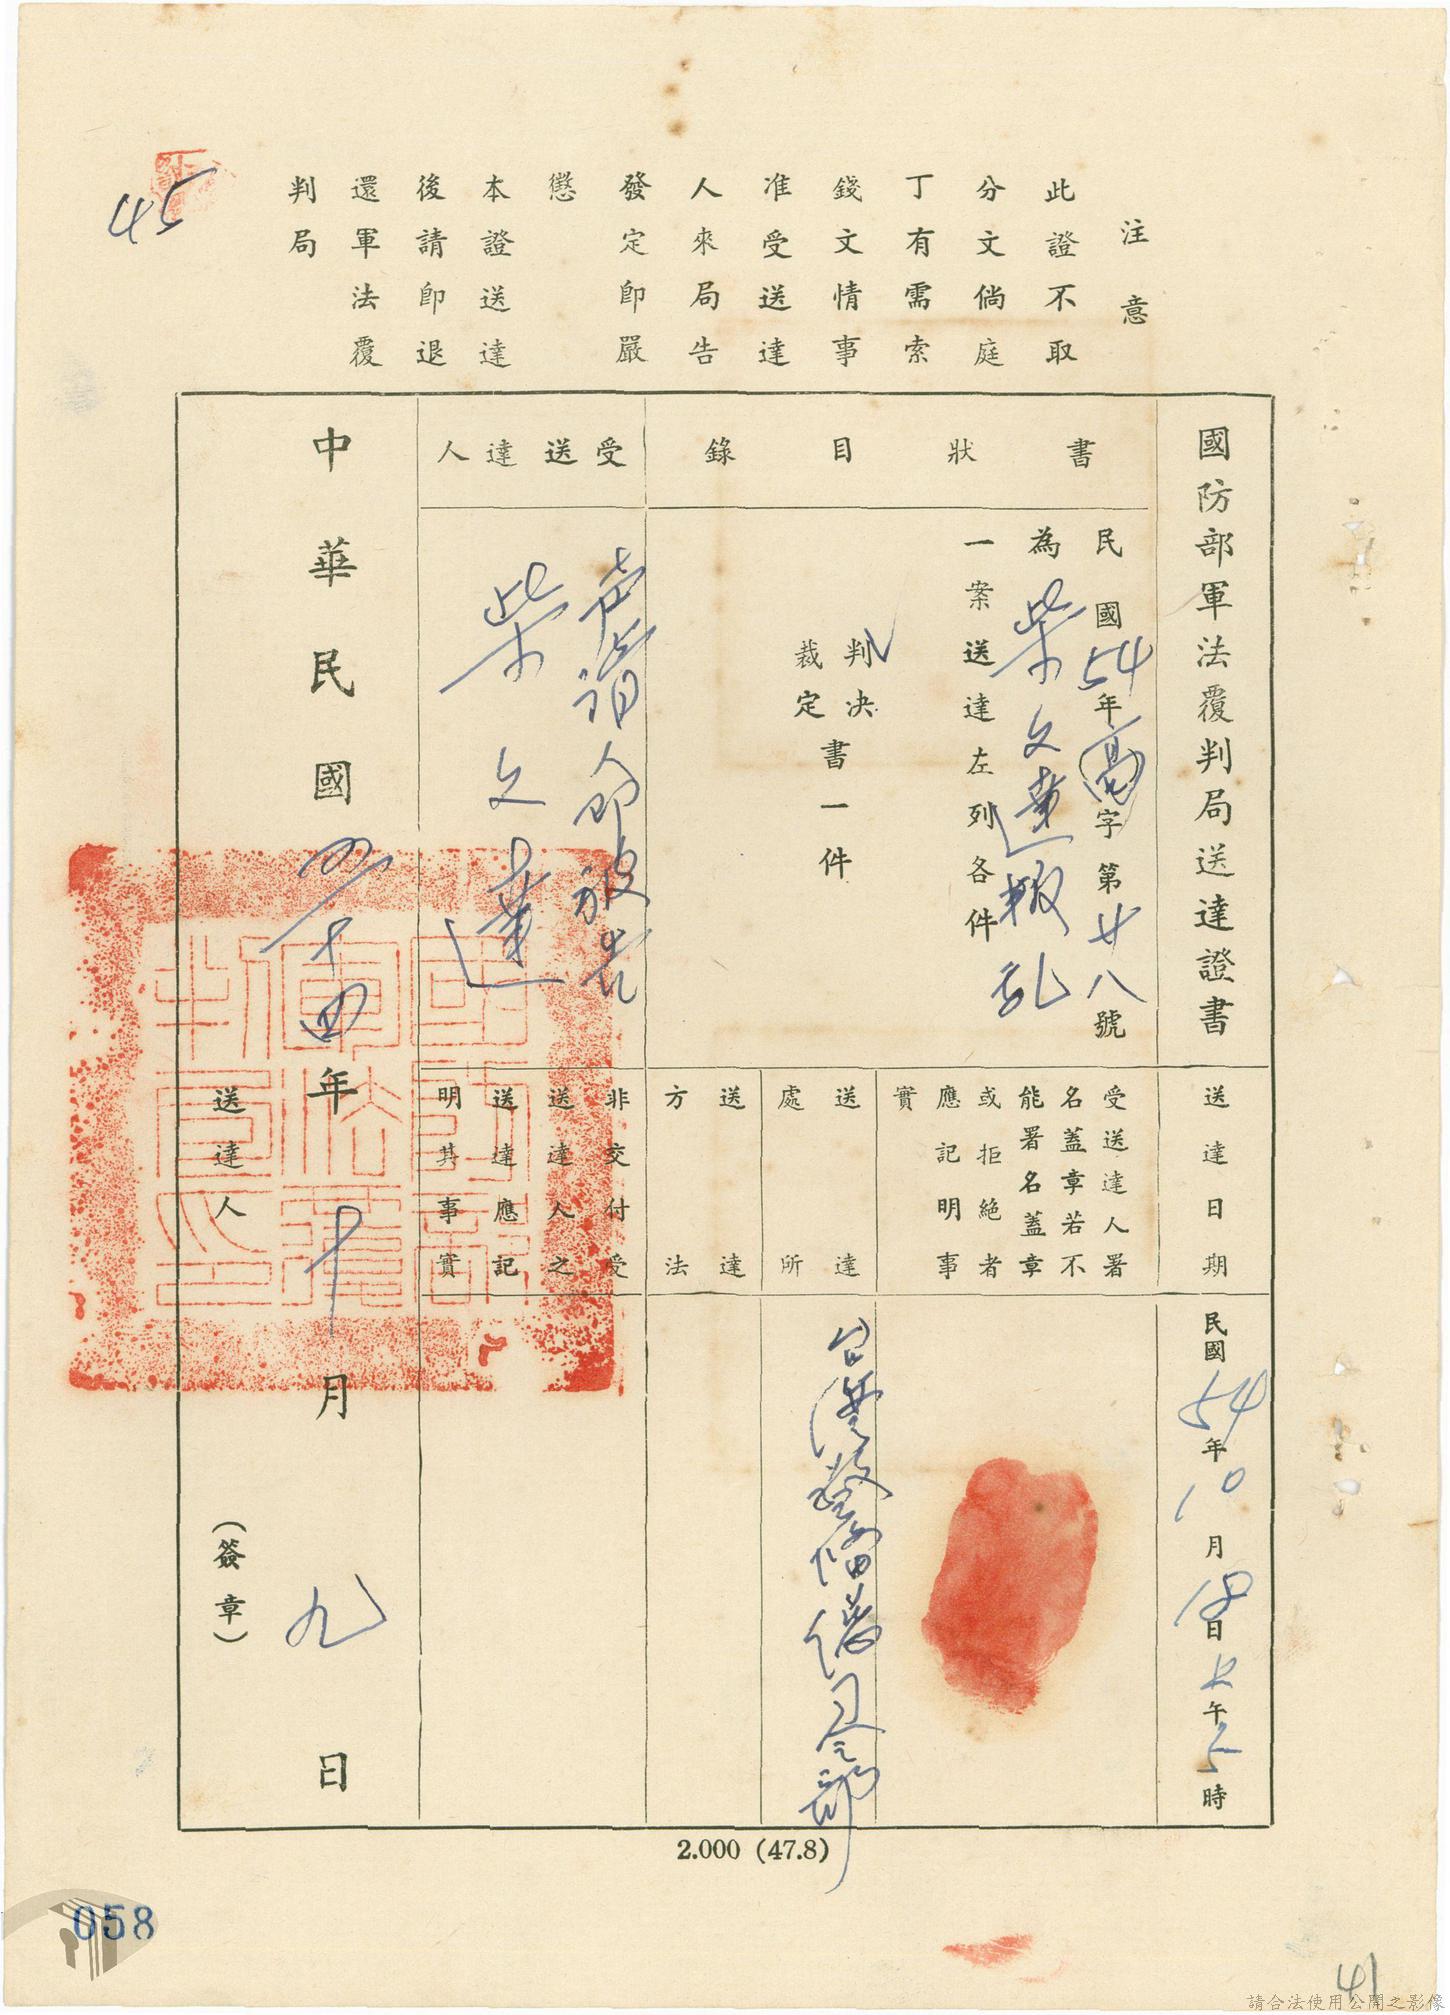 注意
此證不取
分文倘庭
丁有需索
錢文情事
准受送達
人來局告
發定即嚴
懲
本證送達
後請即退
還軍法覆
判局
45
國防部軍法覆判局送達證書
書狀目錄
民國54年高字第廿八號
為柴文達叛乱
一案送達左列各件
判決
裁定
書一件
受送達人
声請人即被告
柴文達
送達日期
民國54年10月18日上午
時
受送達人署
名蓋章若不
能署名蓋章
或拒絕者
應記明事
實
送達
處所
台灣警備總司令部
送達
方法
非交付受
送達人之
送達應記
明其事實
中華民國五十四年十月九日
送達人
(簽章)
2.000 (47.8)
058
41
請合法使用公開之影像